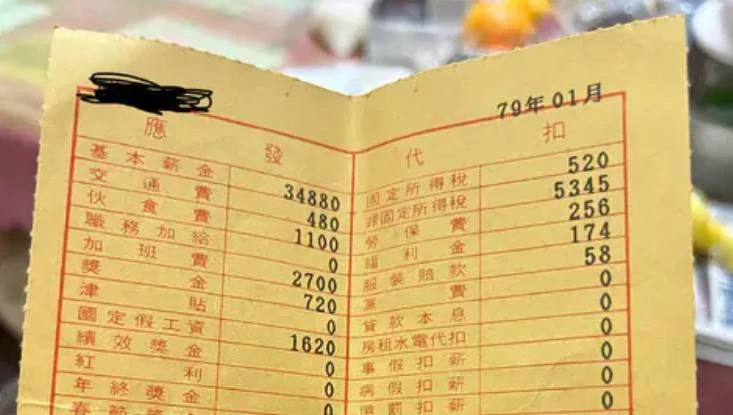 79年01月
應發 代扣
基本薪金 34880 固定所得稅 520
交通費 480 非固定所得稅 5345
伙食費 1100 勞保費 256
職務加給 0 福利金 174
加班費 2700 服裝賠款 58
獎金 720 黨費 0
津貼 0 貸款本息 0
國定假工資 1620 房租水電代扣 0
績效獎金 0 事假扣薪 0
紅利 0 病假扣薪 0
年終獎金 0 懲罰扣薪 0
春節